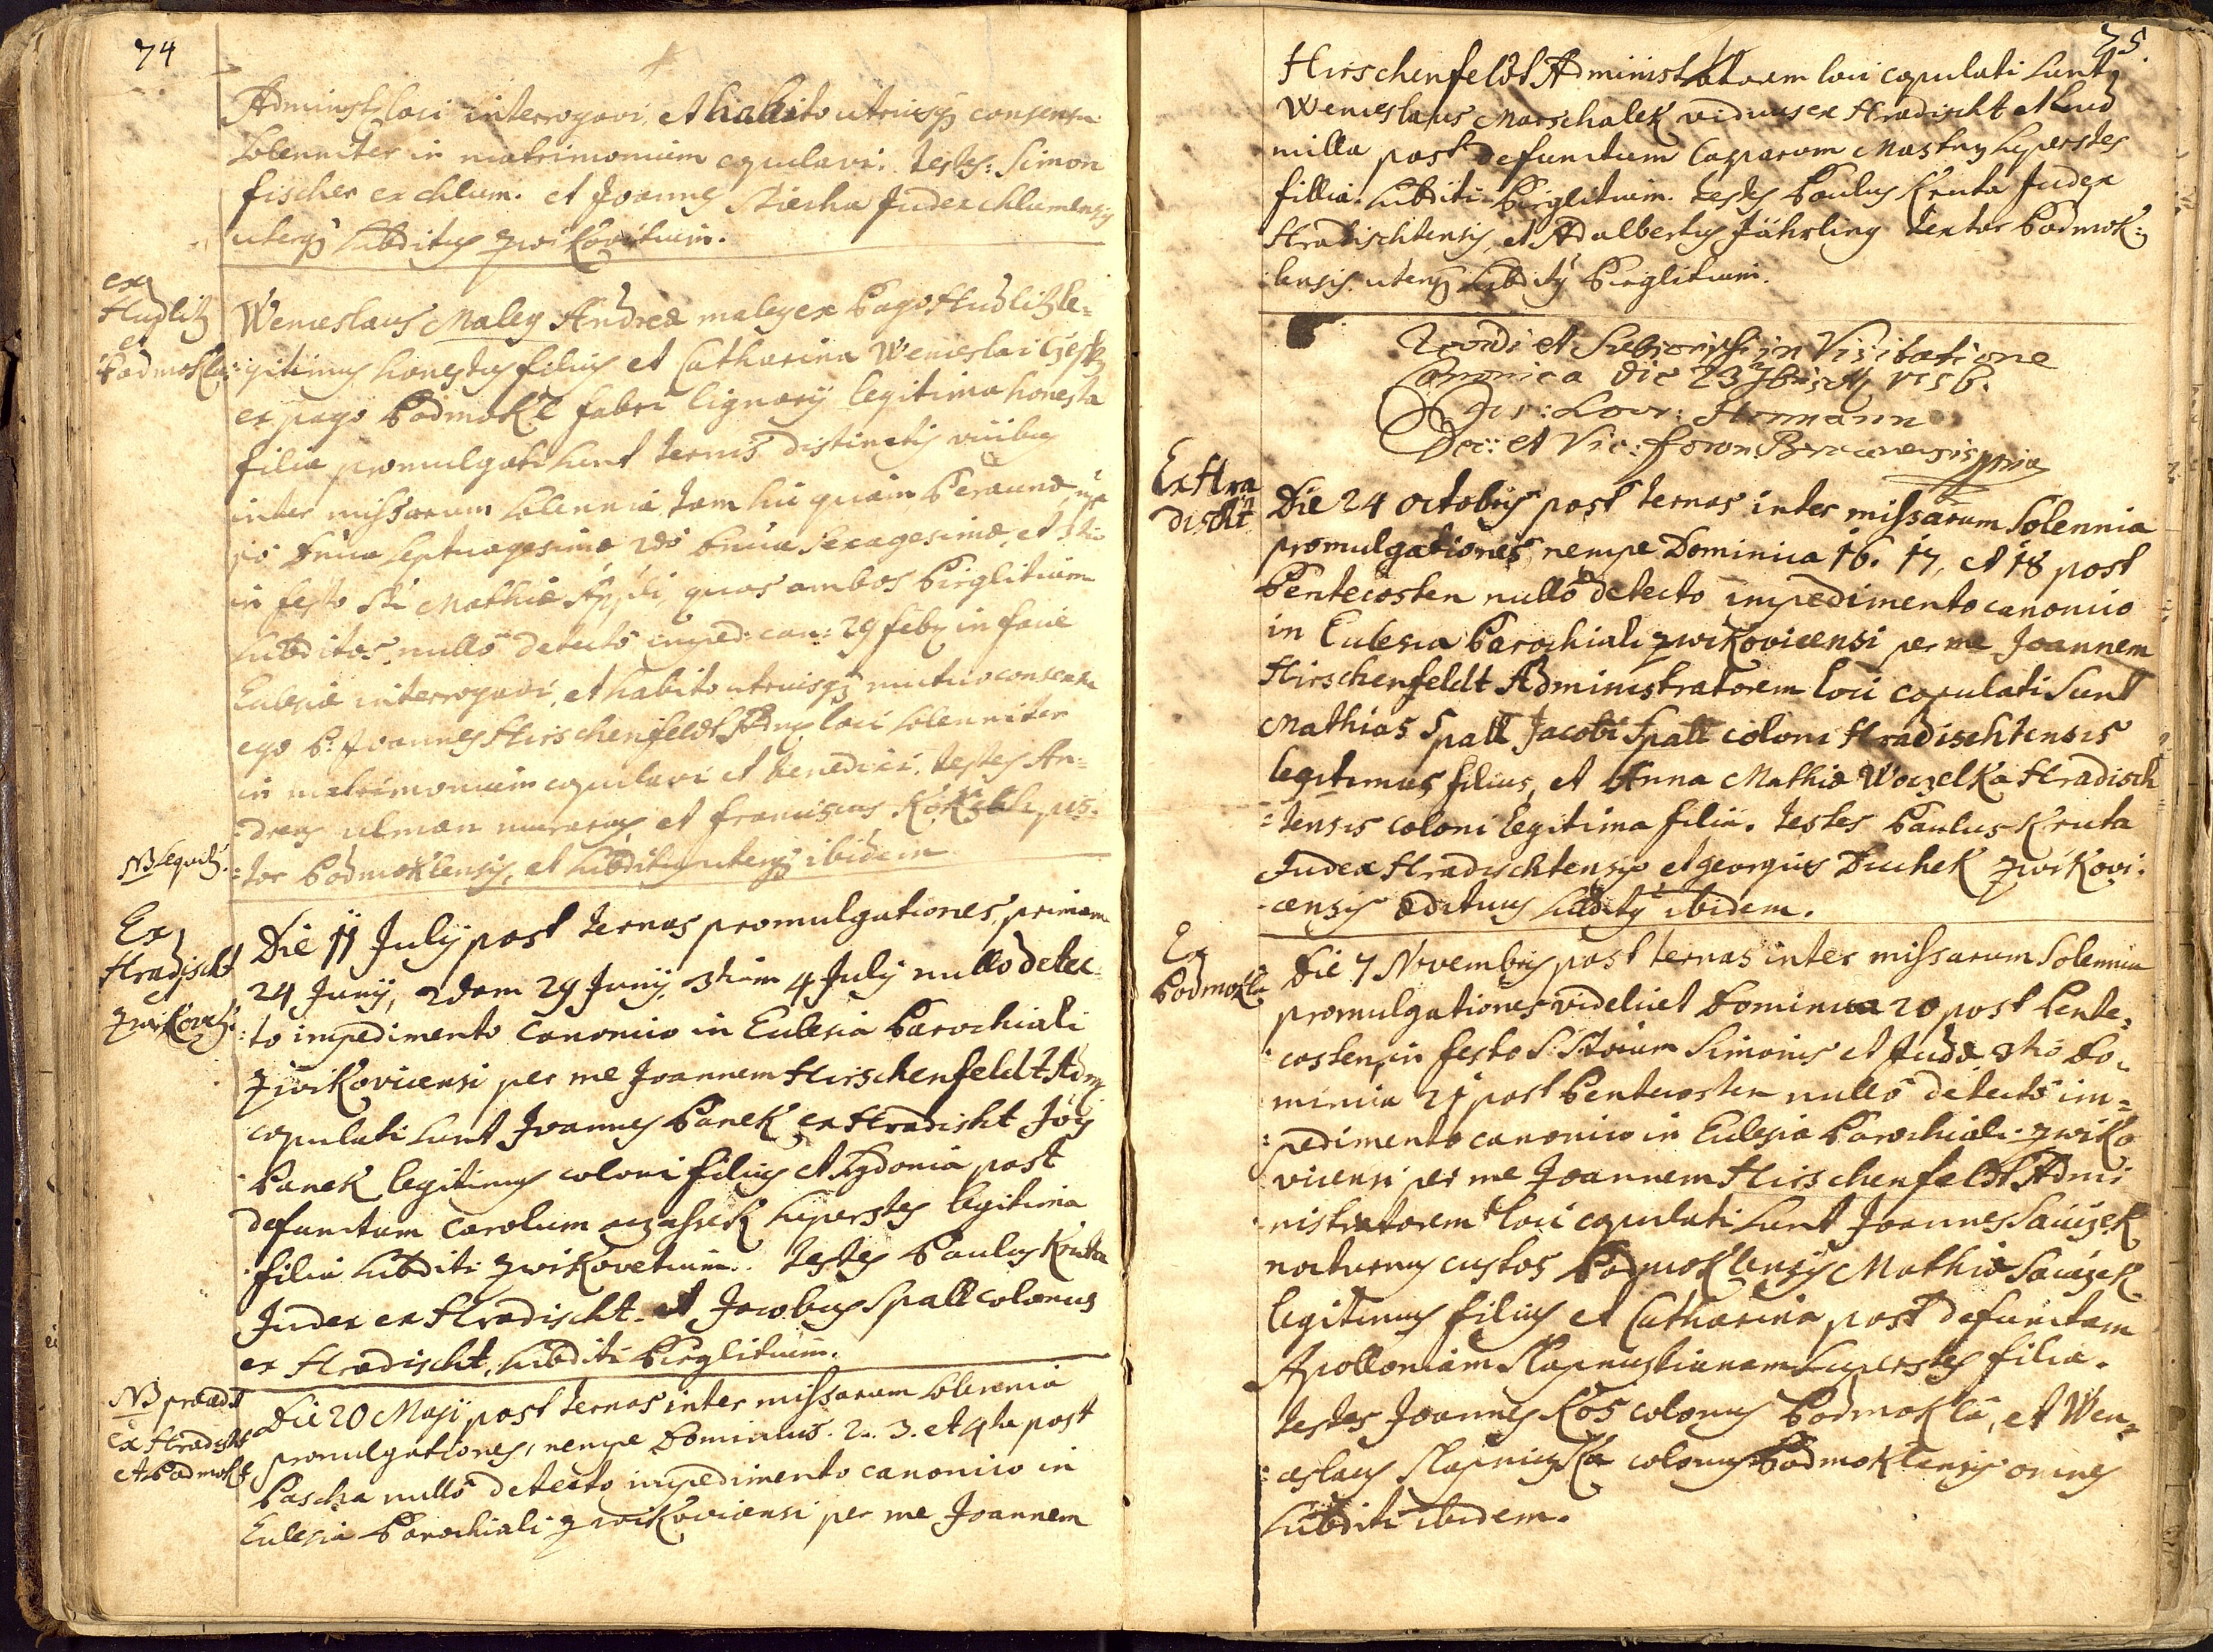 74
Administr loci interrogavi, et habito utriusq consensu
Solenniter in matrimonium copulavi. testes: Simon
fischer ex chlum. et Joannes Judex chlumensis
uterq subditus zwikovetium.
ex
Hudlitz
et
Podmokl
Wenceslaus Maleg Andreæ maleg ex Pago Hudlitz le=
:gitimus honestus filius et Catharina Wenceslai
ex pago Podmokl fabri lignarij legitima honesta
filia promulgati sunt ternis distinctis vicibus
inter missarum solennia tam hic quam Peraunæ
Dnica Septuagesimæ 2do Dnica Sexagesimæ, et 3tio
in festo Sti Mathiæ Appli, quos ambos Pirglitium
subditos, nullo detecto imped: can: 29 feb in facie
Eclesiæ interrogavi, et habito utriusq mutuo consensu
ego P: Joannes Hirschenfeldt loci solenniter
in matrimonium copulavi et benedixi. testes An=
:dreas ulman murarius et franciscus
NB sequit.
=tor Podmoklensis, et subditus uterq ibidem
Ex
Hradischt
et
zwikovetz
Die 11 July post ternas promulgationes, primam
24 Junij, 2dam 29 Junij, 3tiam 4 July nullo detec=
:to impedimento canonico in Eclesia Parochiali
zwikovicensi per me Joannem Hirschenfeldt Adm
copulati sunt Joannes Panek ex Hradischt Jois
Panek legitimus coloni filius et Sydonia post
defunctum Carolum superstes legitima
filia subditi zwikovetium. testes Paulus Kruta
Judex ex Hradischt. et Jacobus Spall colonus
ex Hradischt, subditi Pirglitium.
NB præcedit
Ex Hradischt
et Podmokl
Die 20 Maij post ternas inter missarum solennia
promulgationes, nempe Dominicis. 2. 3. et 4ta post
Pascha nullo detecto impedimento canonico in
Eclesia Parochiali zwikovicensi per me Joannem
75.
Hirschenfeldt Administratorem loci copulati sunt
Wenceslaus Marschalek viduus ex Hradischt et Lud
milla post defunctum Casparum Mastny superstes
fillia. subditi Pirglitium. testes Paulus Kruta Judex
Hradischtensis, et Adalbertus Jährling textor Podmok=
:lensis. uterq subdity Pirglitium.
Revidi et Subscripsi in Visitatione
Canonica die 23 7bris A 1756.
Jos: Laur: Hermann
Dec: et Vic: foran: Beraunensis mpria
Ex Hra
discht
Die 24 octobris post ternas inter missarum Solennia
promulgationes, nempe Dominica 16. 17. et 18 post
Pentecosten nullo detecto impedimento canonico
in Eclesia Parochiali zwikovicensi per me Joannem
Hirschenfeldt Administratorem loci copulati Sunt
Mathias Spall Jacobi Spall coloni Hradischtensis
legitimus filius, et Anna Mathiæ Woczelka Hradisch
=tensis coloni legitima filia. testes Paulus Kruta
Judex Hradischtensis et georgius Duchek zwikovi:
-censis ædituus subdity ibidem.
Ex
Podmokl
Die 7 Novembris post ternas inter missarum Solennia
promulgationes videlicet Dominica 20 post Pente=
:costen, in festo S:Storum Simonis et Judæ 3tio Do=
minica 21 post Pentecosten nullo detecto im=
:pedimento canonico in Eclesia Parochiali zwiko
vicensi per me Joannem Hirschenfeldt Admi
nistratorem loci copulati sunt Joannes Sauczek
nocturnus custos Podmoklensis Mathiæ Sauczek
legitimus filius et Catharina post defunctam
Apolloniam superstes filia.
testes Joannes Kos colonus Podmokla, et Wen=
:ceslaus colonus Podmoklensis omnes
subditi ibidem.